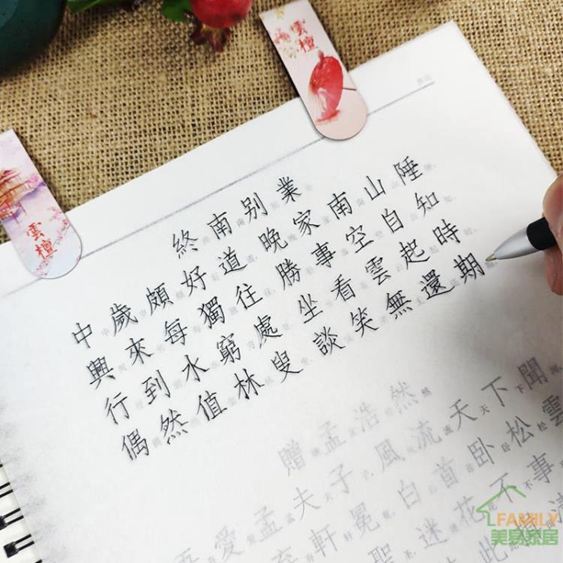 雲檀
雲檀
終南别業
中歲頗好道晚家南山陲
興來每獨往勝事空自知
行到水窮處坐看雲起時
偶然值林叟談笑無還期
贈孟浩然
吾愛孟夫子風流天下聞
軒冕白首卧松雲
聖迷花不事
此
FAMILY
美易家居